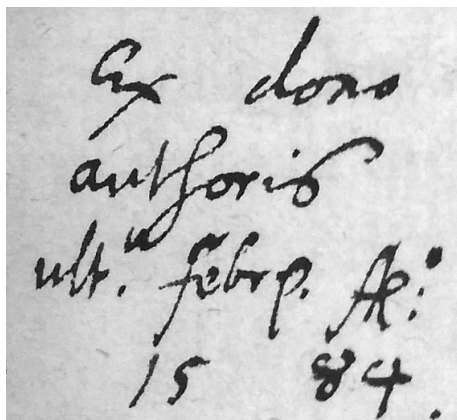 Ex dono
authoris
ult.a febrp. Ao:
15 84.